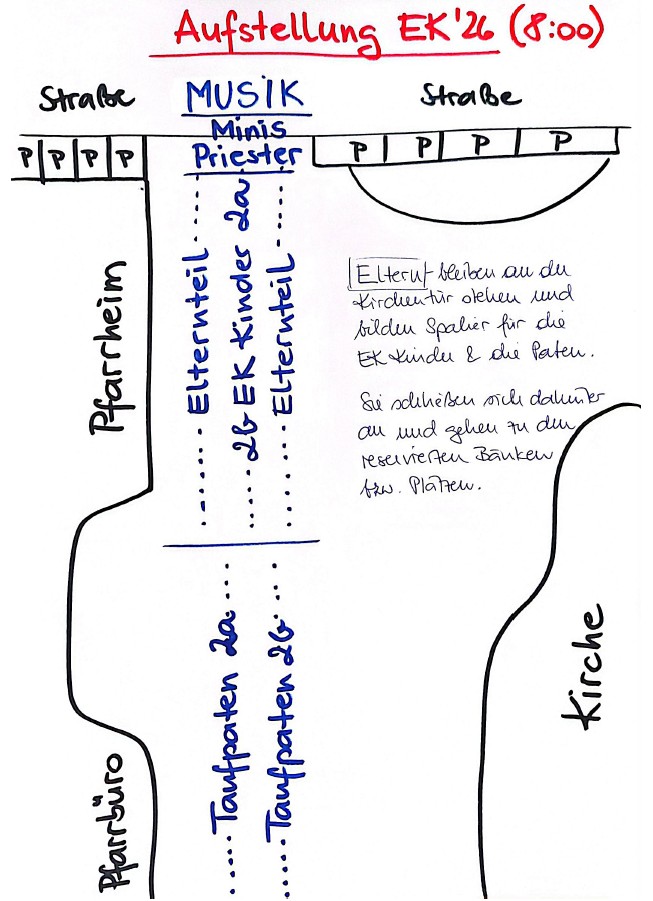 Aufstellung EK'26 (8:00)
Straße
MUSIK
Straße
Minis
Priester
P P P P
P P P P
Pfarrheim
Elternteil
2b EK Kinder 2a
Elternteil
Eltern bleiben an der
Kirchentür stehen und
bilden Spalier für die
EK Kinder & die Paten.
Sie schließen sich dahinter
an und gehen zu den
reservierten Bänken
bzw. Plätzen.
Taufpaten 2a
Taufpaten 2b
Kirche
Pfarrbüro